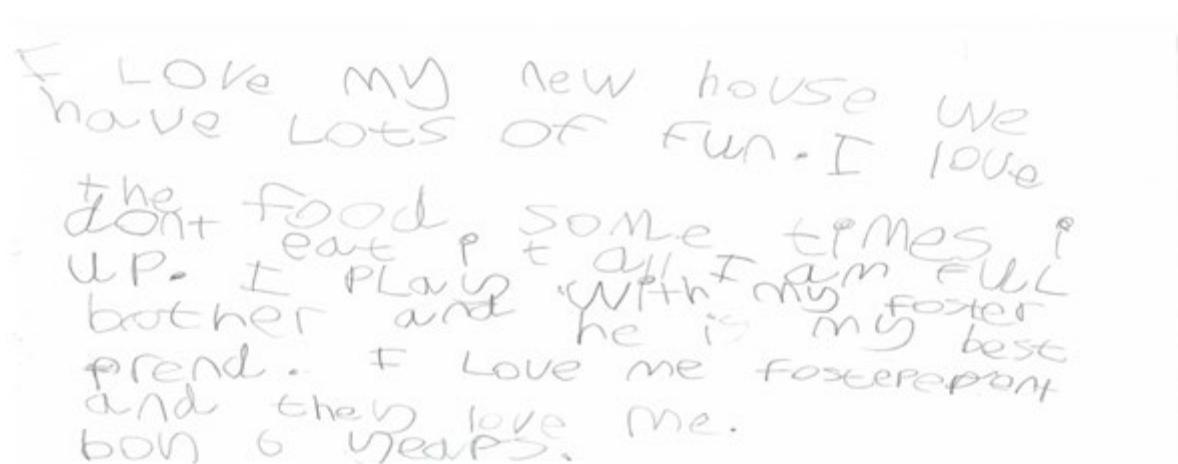 I LOVe MY new house We
have LOtS OF Fun. I love
the food some times i
dont eat it all I am FULL
UP. I PLay With my foster
brother and he is my best
prend. I Love me fosterepPant
and they love me.
boy 6 years.